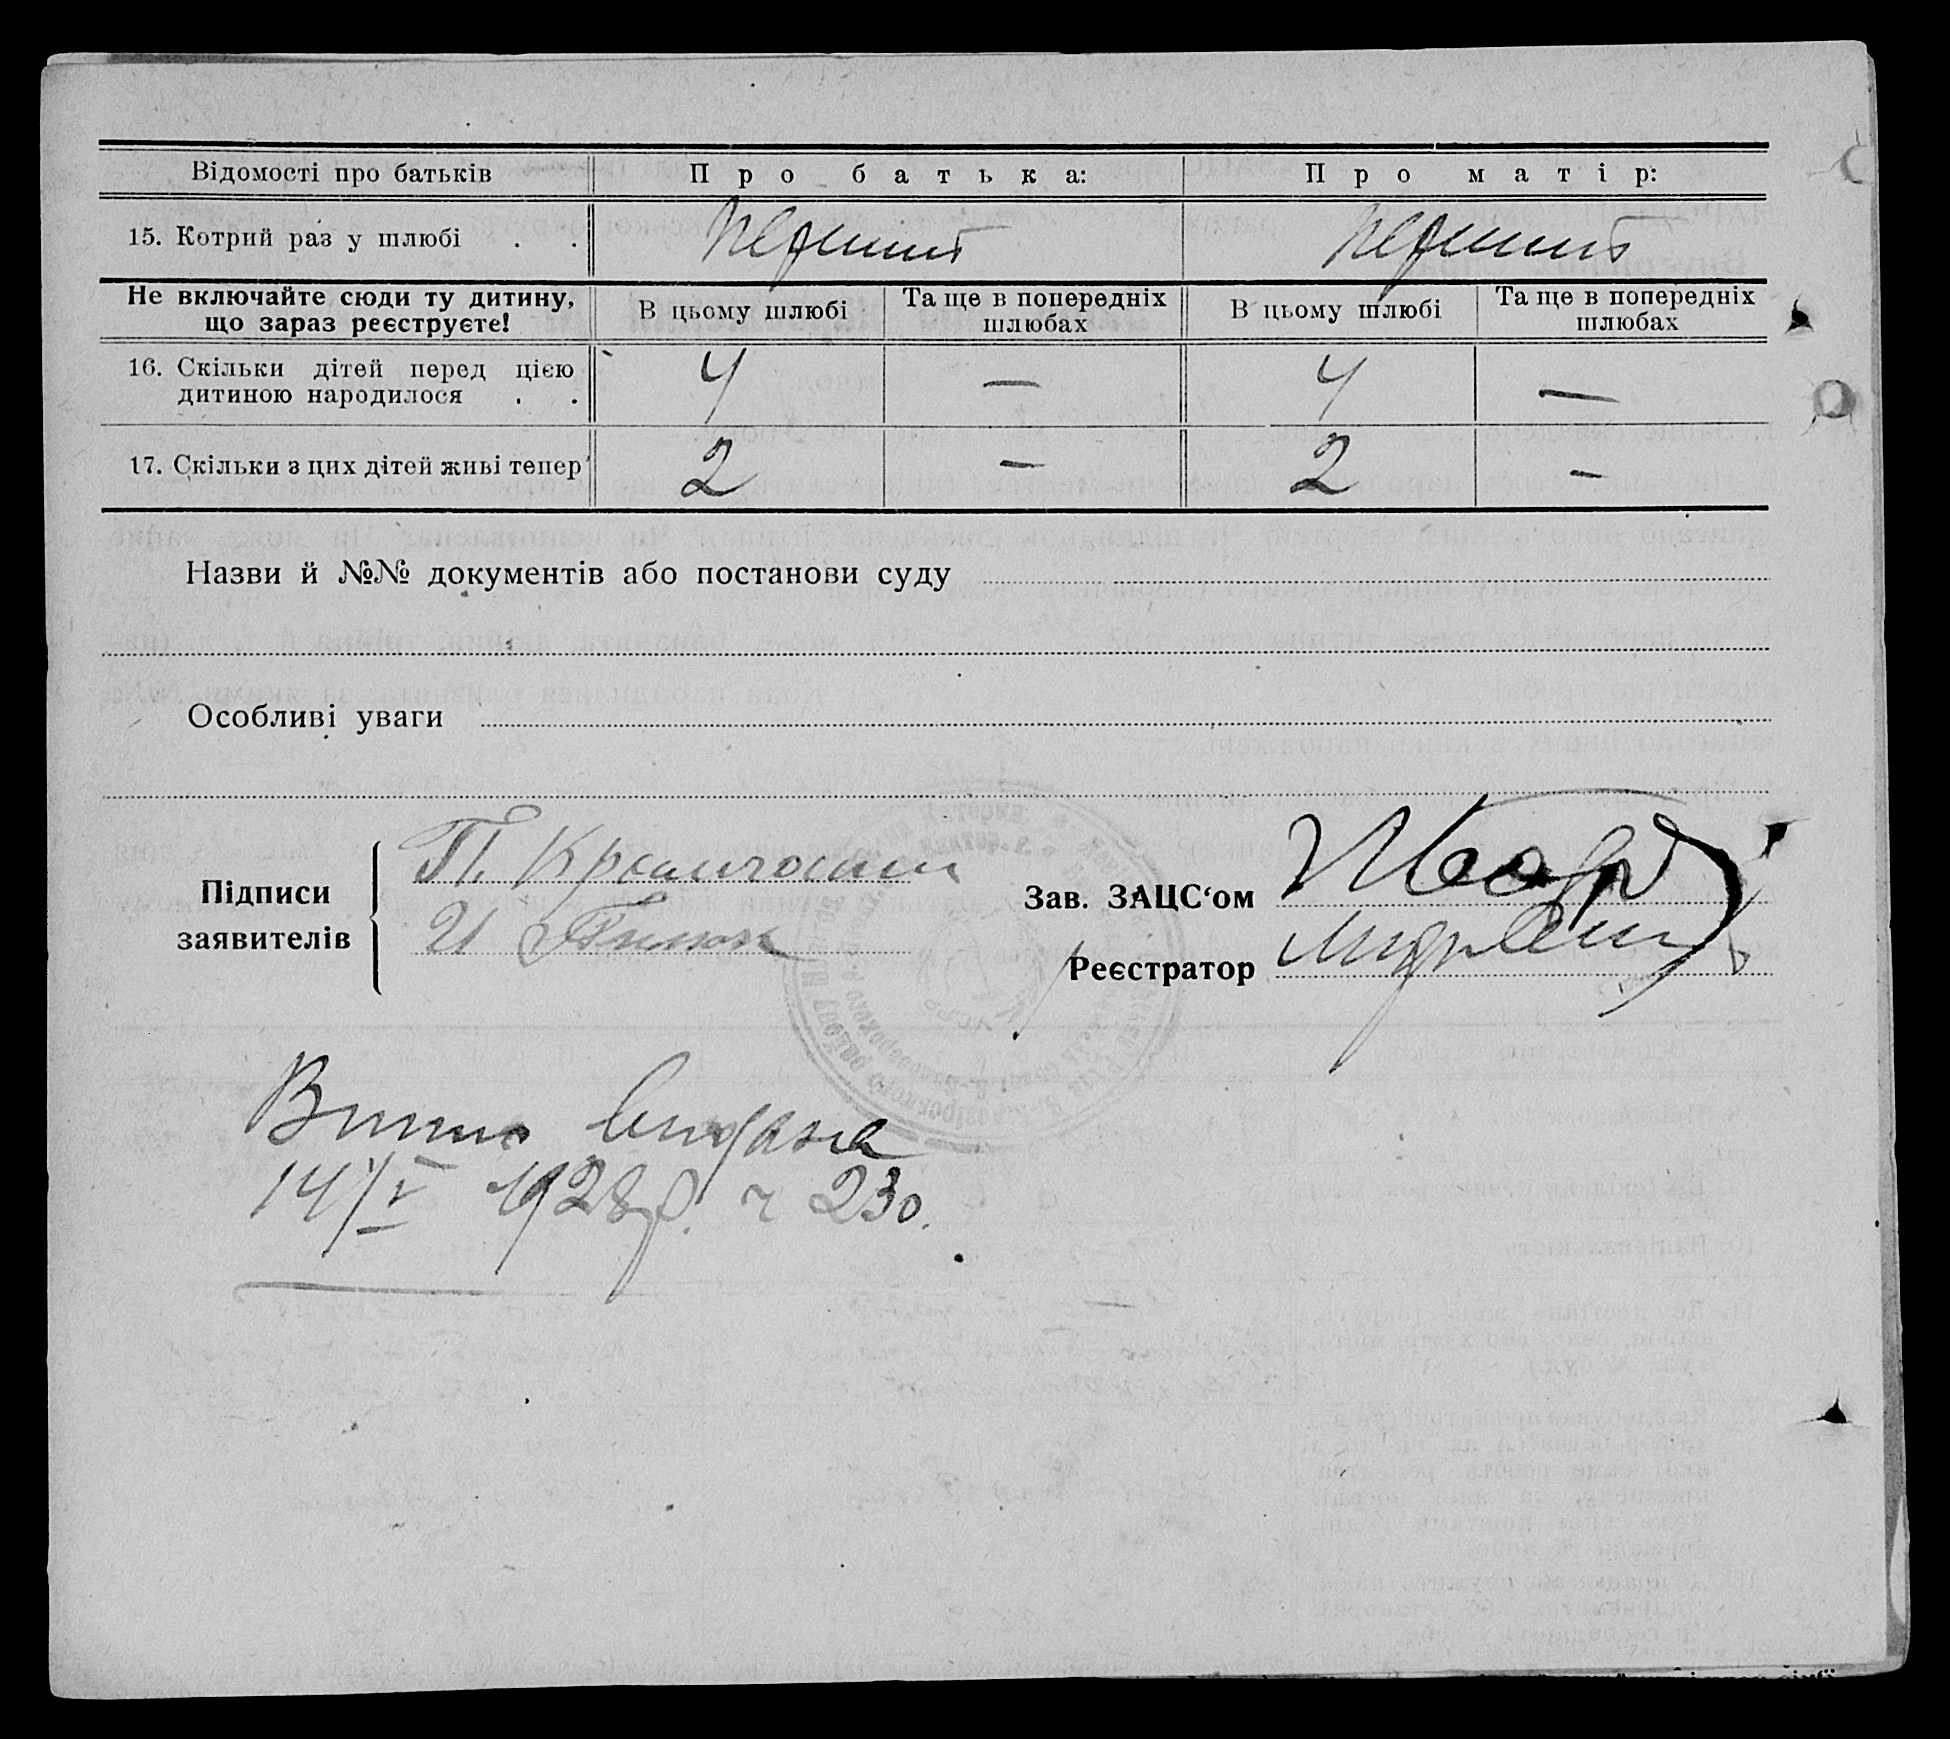 Відомості про батьків Про батька: Про матір:
15. Котрий раз у шлюбі . . перший перший
Не включайте сюди ту дитину, що зараз реєструєте! В цьому шлюбі Та ще в попередніх шлюбах В цьому шлюбі Та ще в попередніх шлюбах
16. Скільки дітей перед цією дитиною народилося . . 4 — 4 —
17. Скільки з цих дітей живі тепер 2 — 2 —
Назви й №№ документів або постанови суду
Особливі уваги
Підписи заявителів
П.
И
Зав. ЗАЦС‘ом
Реєстратор
видана
14/V 1928р. ч 230.